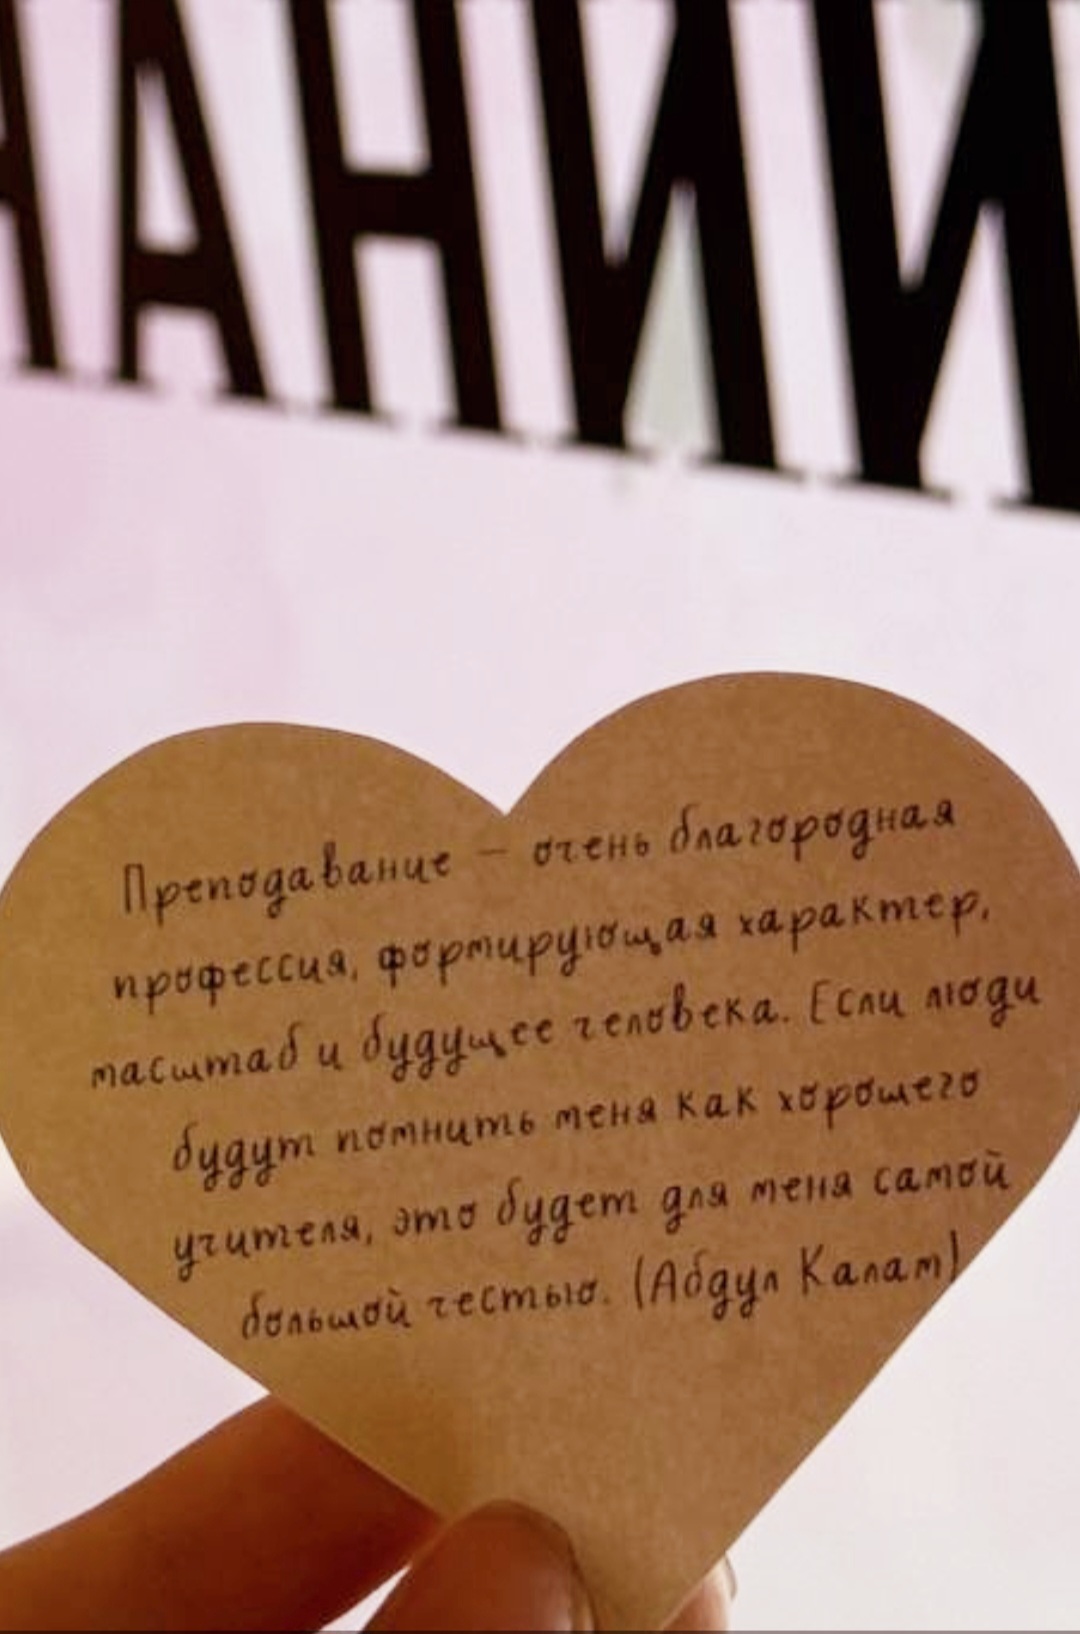 АНИИ
Преподавание – очень благородная
профессия, формирующая характер,
масштаб и будущее человека. Если люди
будут помнить меня как хорошего
учителя, это будет для меня самой
большой честью. (Абдул Калам)